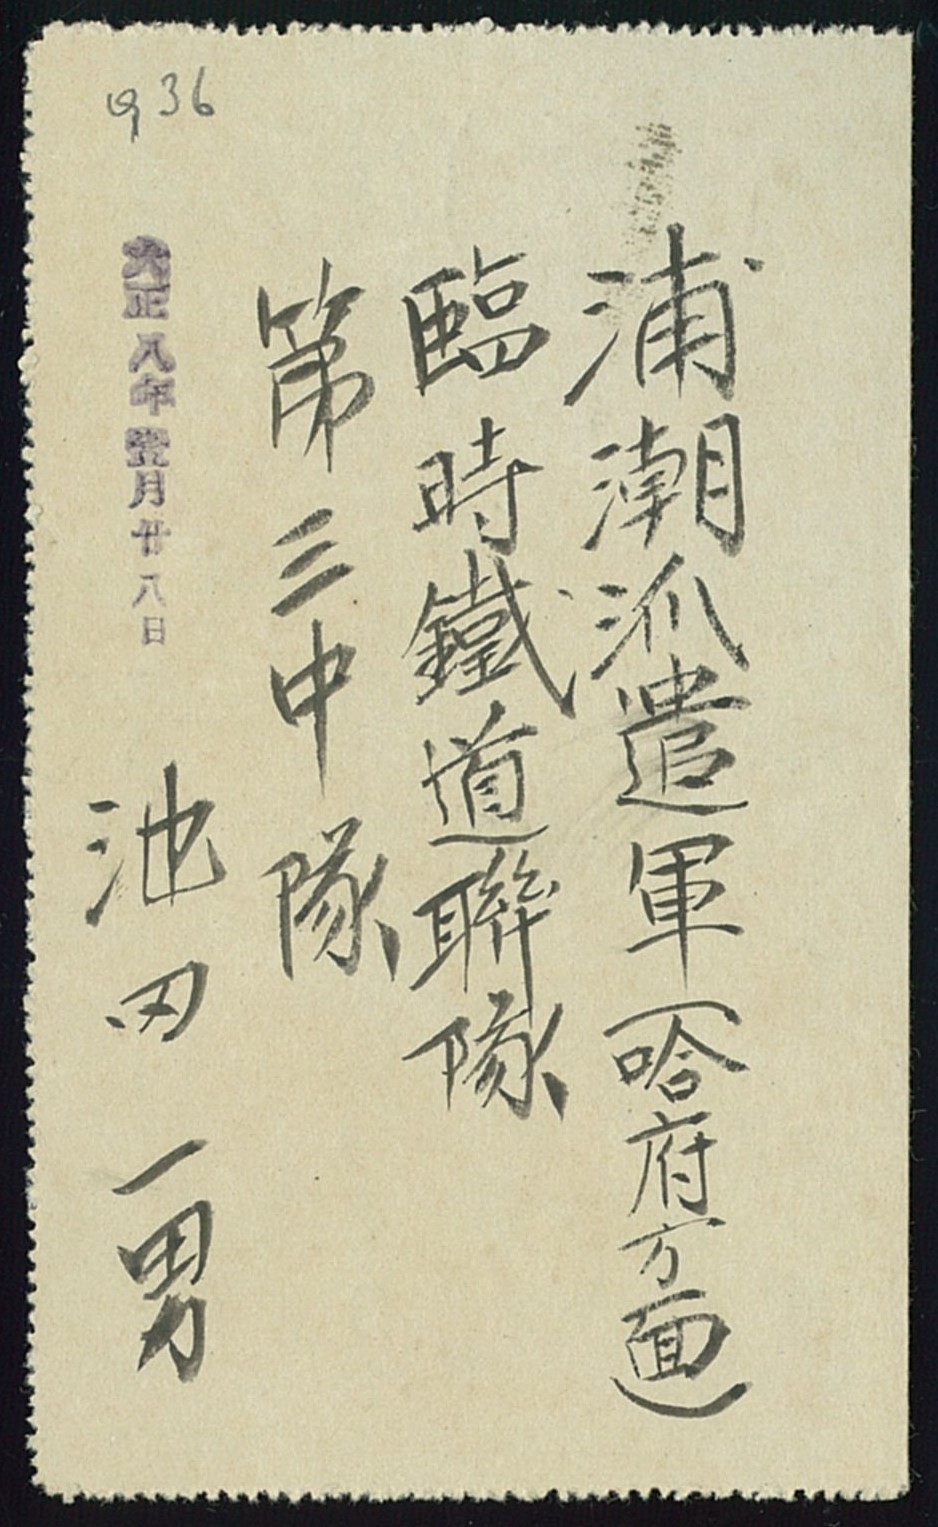 浦潮派遣軍(哈府方面)
臨時鐵道聯隊
第三中隊
池田一男
大正八年壹月廿八日
936